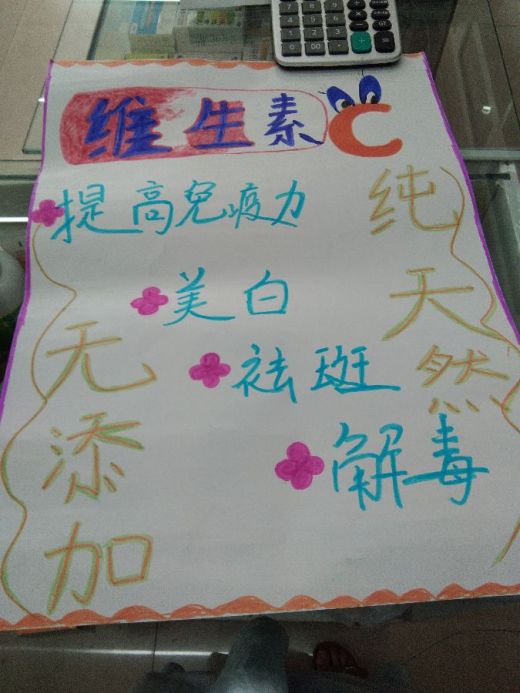 维生素C
提高免疫力
美白
祛斑
解毒
纯天然
无添加